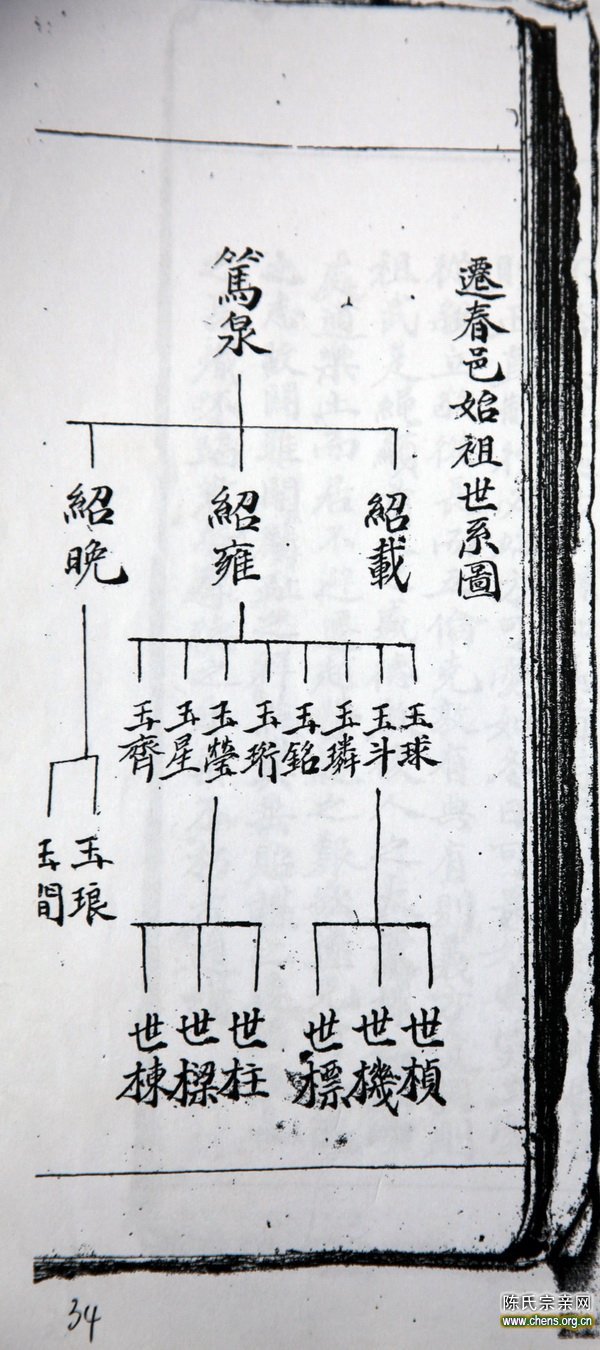 遷春邑始祖世系圖
篤泉
紹載
紹雍
紹晚
玉球
玉斗
玉璘
玉銘
玉珩
玉瑩
玉星
玉齊
玉琅
玉閒
世楨
世機
世標
世柱
世樑
世棟
34
陈氏宗亲网
www.chens.org.cn